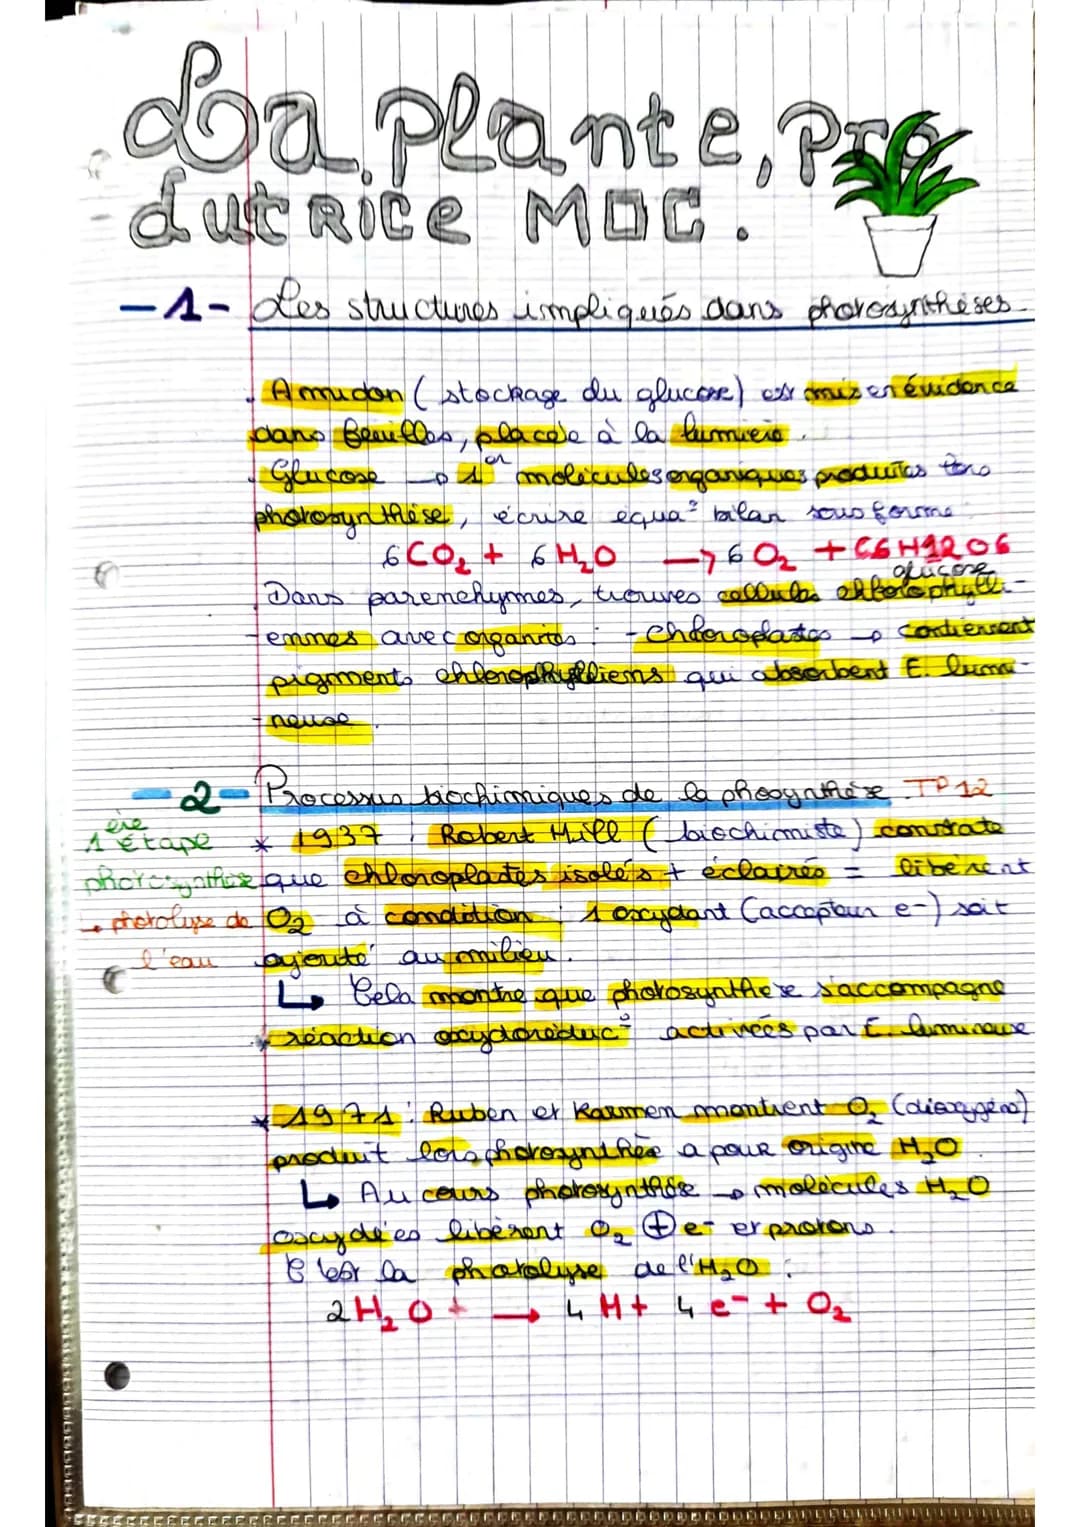 La plante, Pro
dutRice MOC.
-1- Les structures impliqués dans photosynthèses
. Amidon (stockage du glucose) est mis en évidence
dans feuilles, placée à la lumière.
. Glucose → 1er molécules organiques produites lors
photosynthèse, écrire équa° bilan sous forme :
6CO2 + 6H2O → 6O2 + C6H12O6
glucose
Dans parenchymes, trouves cellules chlorophylli-
ennes avec organites : - chloroplastes → contiennent
pigments chlorophylliens qui absorbent E. lumi-
neuse.
-2- Processus biochimiques de la phosynthèse TP 12
1ère étape
photosynthèse
→ photolyse de
l'eau
* 1937 : Robert Hill (biochimiste) constate
que chloroplastes isolés + éclairés = libèrent
O2 à condition : 1 oxydant (accepteur e-) soit
ajouté au milieu.
↳ Cela montre que photosynthèse s'accompagne
réaction oxydoréduc° activées par E. lumineuse
* 1971 : Ruben et Kamen montrent O2 (dioxygène)
produit lors photosynthèse a pour origine H2O.
↳ Au cours photosynthèse → molécules H2O
oxydées libèrent O2 ⊕ e- et protons.
C'est la photolyse de l'H2O :
2H2O + → 4 H+ 4 e- + O2